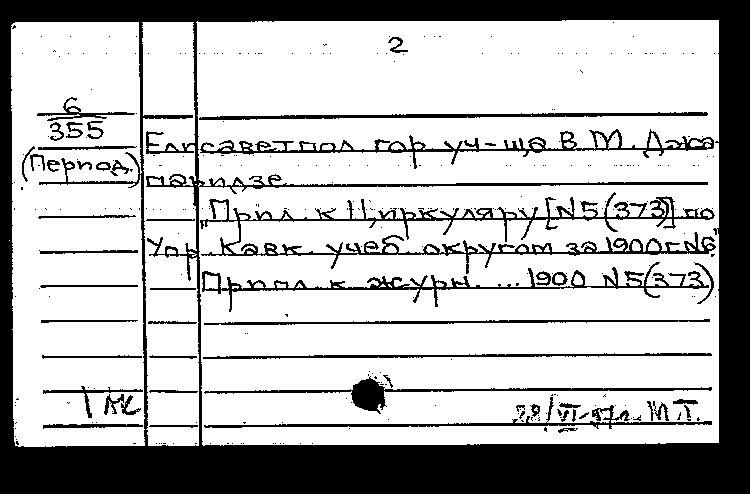 2
6
355
(Период.)
Елисаветпол гор уч-ща В. М. Джа-
паридзе.
„Прил. к Циркуляру [N5(373)] по
Упр. Кавк. учеб. округом за 1900 г. N6"
Прилл. к журн. ... 1900 N5(373)
1 АК
28/VI-57г. М.Т.